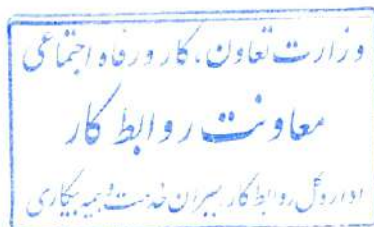 وزارت تعاون، کار و رفاه اجتماعی
معاونت روابط کار
اداره کل روابط کار و جبران خدمت و بیمه بیکاری